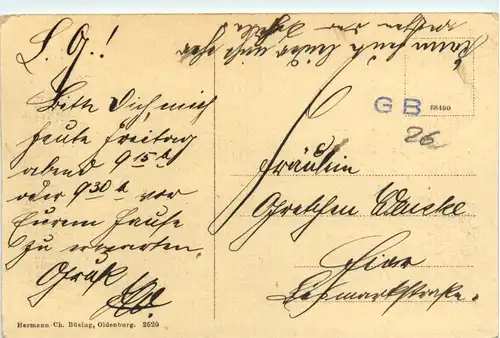 L. G.!
Bitte Dich, mich
heute Freitag
abend 9 15 a
oder 9 30 a vor
Eurem Hause
zu erwarten.
Gruß
Kann heute leider nicht eher
G B
58480
26
Fräulein
Gretchen
Hier
Bismarckstraße.
Hermann Ch. Büsing, Oldenburg. 2620